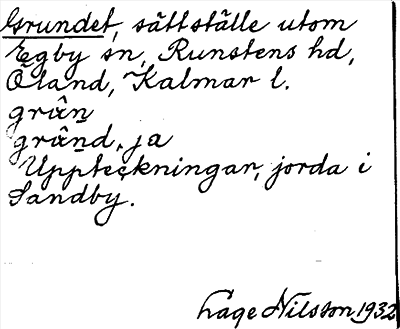 Grundet, sättställe utom
Egby sn, Runstens hd,
Öland, Kalmar l.
grân
grând, ja
Uppteckningar, jorda i
Sandby.
Lage Nilsson 1932